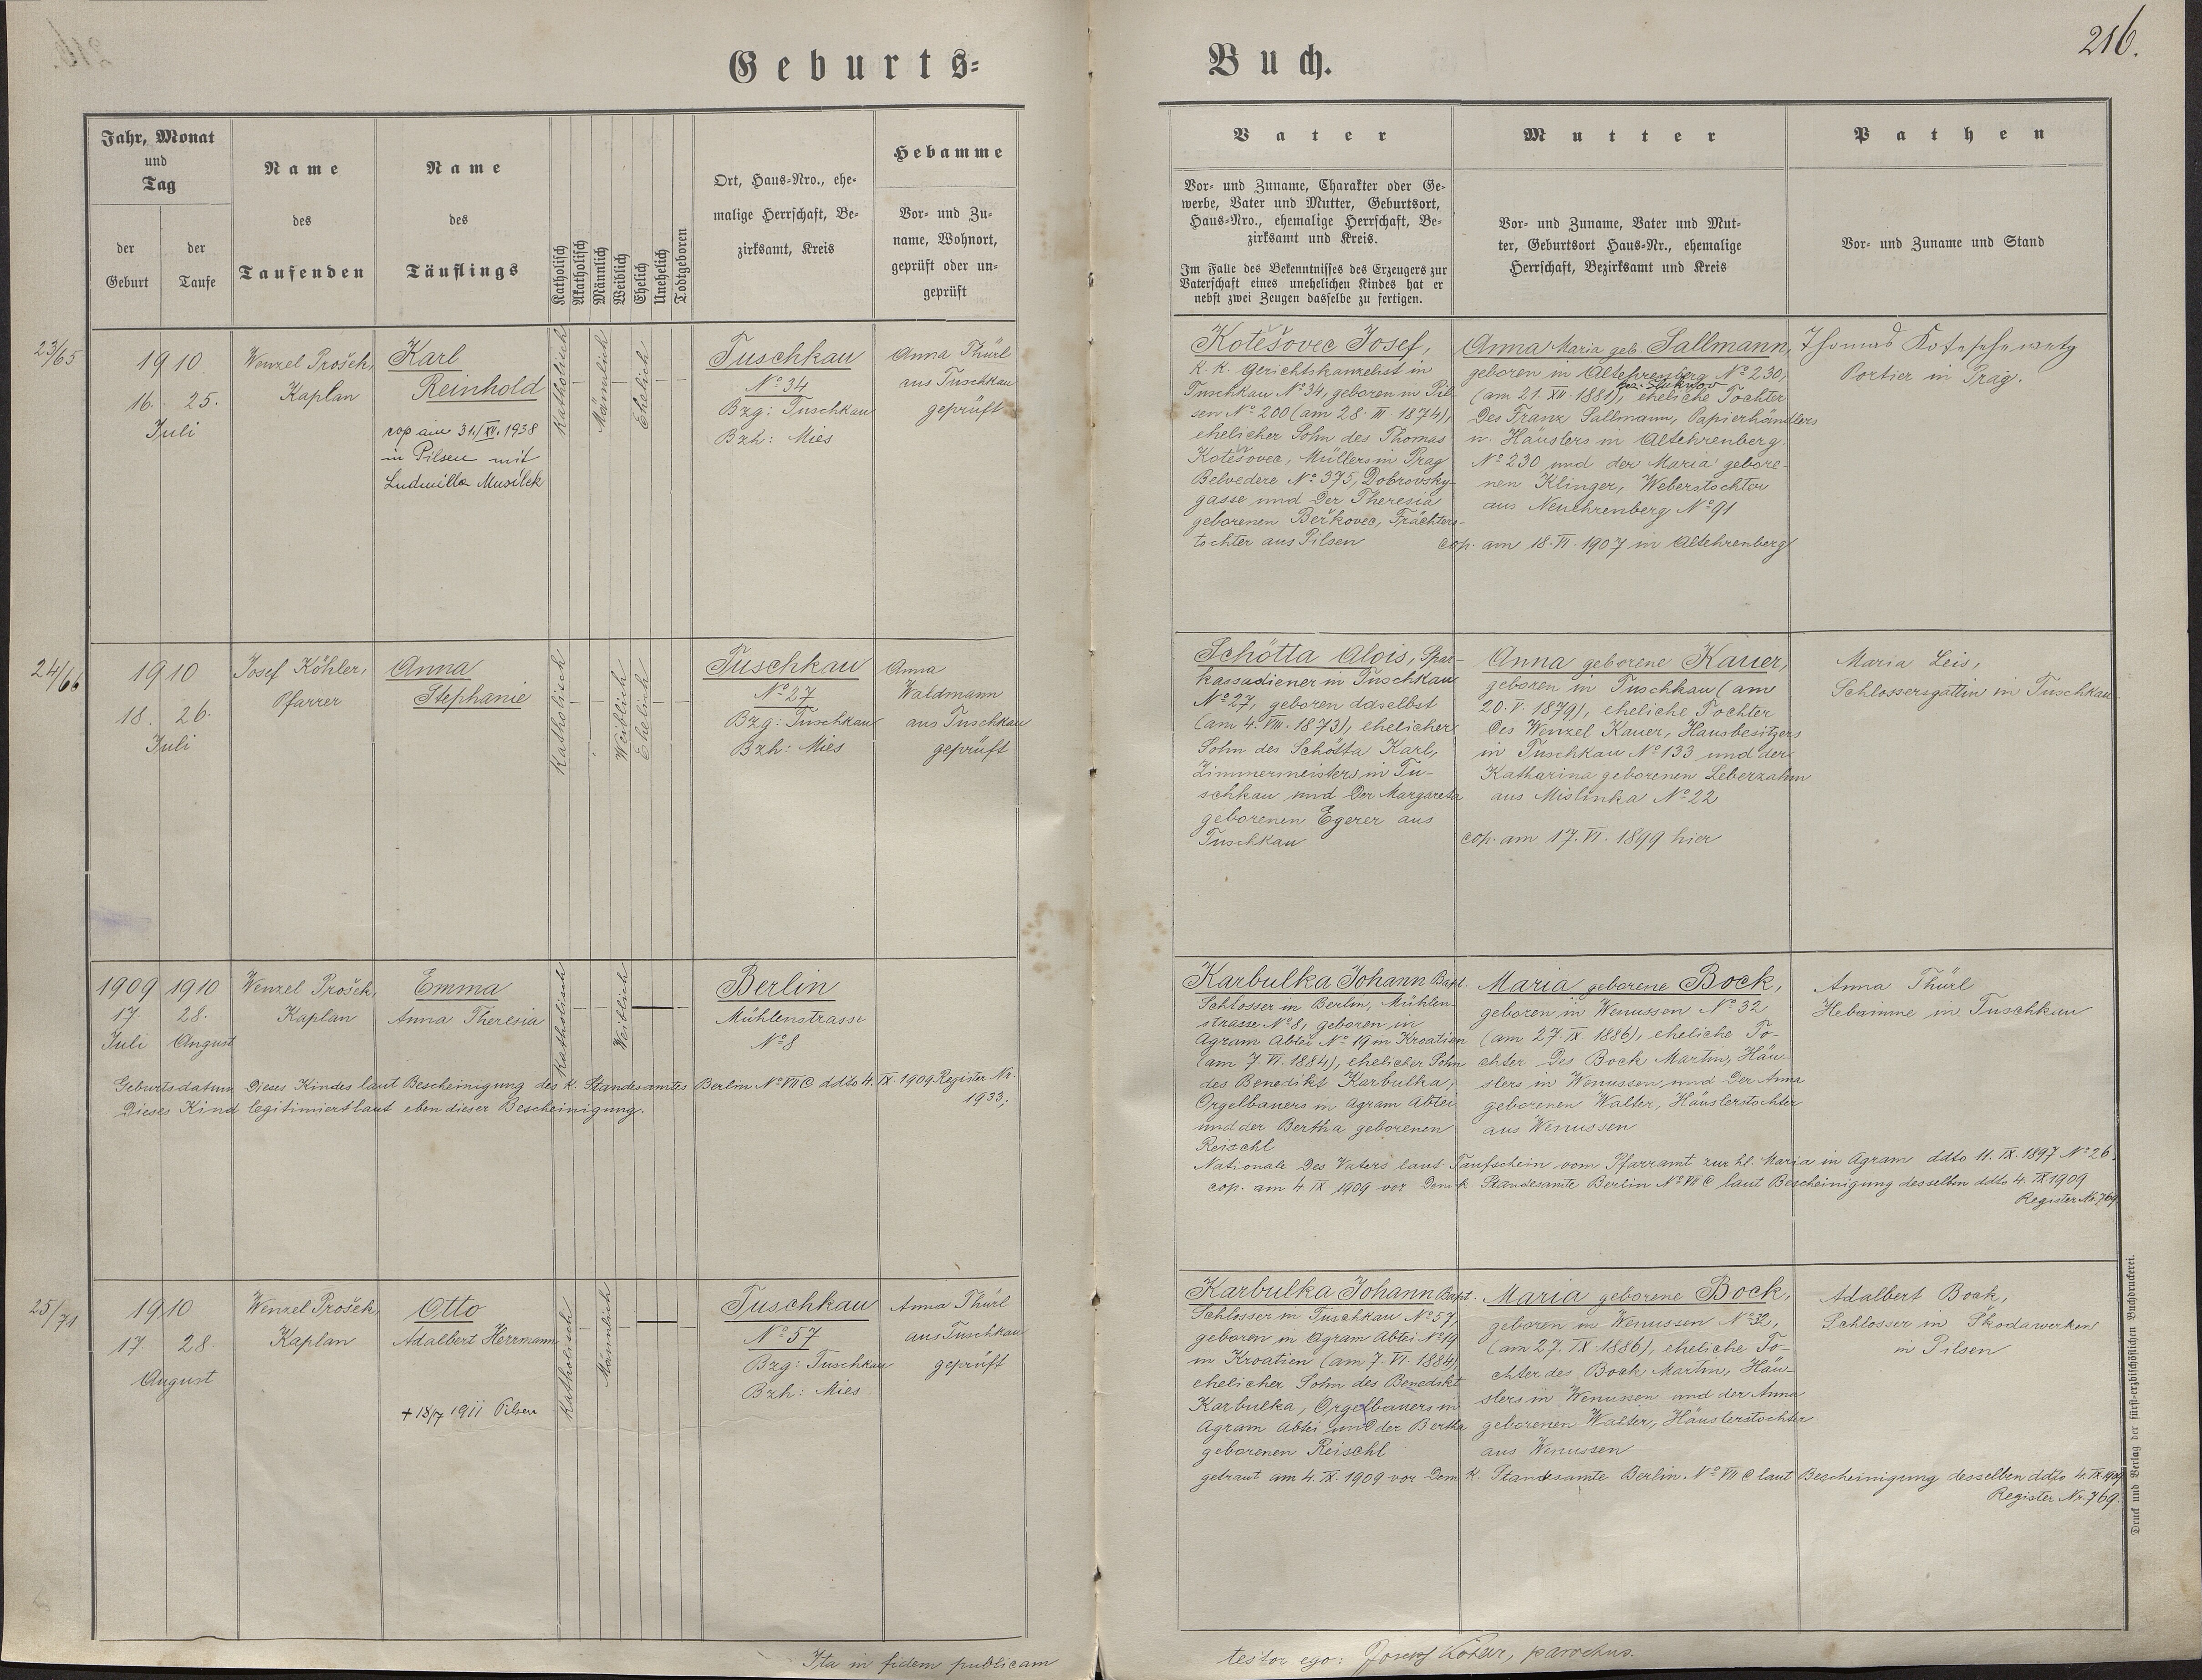 216.
Geburts-
Buch.
Jahr, Monat
und
Tag
der
Geburt
der
Taufe
Name
des
Taufenden
Name
des
Täuflings
Katholisch
Akatholisch
Männlich
Weiblich
Ehelich
Unehelich
Todtgeboren
Ort, Haus-Nro., ehe-
malige Herrschaft, Be-
zirksamt, Kreis
Hebamme
Vor- und Zu-
name, Wohnort,
geprüft oder un-
geprüft
Vater
Vor- und Zuname, Charakter oder Ge-
werbe, Vater und Mutter, Geburtsort,
Haus-Nro., ehemalige Herrschaft, Be-
zirksamt und Kreis.
Im Falle des Bekenntnisses des Erzeugers zur
Vaterschaft eines unehelichen Kindes hat er
nebst zwei Zeugen dasselbe zu fertigen.
Mutter
Vor- und Zuname, Vater und Mut-
ter, Geburtsort Haus-Nr., ehemalige
Herrschaft, Bezirksamt und Kreis
Pathen
Vor- und Zuname und Stand
23/65
1910
16. 25.
Juli
Wenzel Prošek,
Kaplan
Karl
Reinhold
cop am 31./XII. 1938
in Pilsen mit
Ludmilla Musílek
Katholisch
Männlich
Ehelich
Tuschkau
No 34
Bzg: Tuschkau
Bzh: Mies
Anna Thürl
aus Tuschkau
geprüft
Kotešovec Josef,
k. k. Gerichtskanzelist in
Tuschkau No 34, geboren in Pil-
sen No 200 (am 28. III 1874),
ehelicher Sohn des Thomas
Kotešovec, Müllers in Prag
Belvedere No 375, Dobrovsky-
gasse und der Theresia
geborenen Berkovec, Trächters-
tochter aus Pilsen
Anna Maria geb. Sallmann,
geboren in Altehrenberg No 230,
(am 21. XII. 1881), eheliche Tochter
des Franz Sallmann, Papierhändlers
u. Häuslers in Altehrenberg
No 230 und der Maria gebore-
nen Klinger, Weberstochter
aus Neuehrenberg No 91
cop. am 18. VI. 1907 in Altehrenberg
Thomas Koteschewetz
Portier in Prag.
24/66
1910
18. 26.
Juli
Josef Köhler,
Pfarrer
Anna
Stephanie
Katholisch
Weiblich
Ehelich
Tuschkau
No 27
Bzg: Tuschkau
Bzh: Mies
Anna
Waldmann
aus Tuschkau
geprüft
Schötta Alois, Spar-
kassadiener in Tuschkau
No 27, geboren daselbst
(am 4. VIII. 1873), ehelicher
Sohn des Schötta Karl,
Zimmermeisters in Tu-
schkau und der Margareta
geborenen Egerer aus
Tuschkau
Anna geborene Kauer,
geboren in Tuschkau (am
20. V. 1879), eheliche Tochter
des Wenzel Kauer, Hausbesitzers
in Tuschkau No 133 und der
Katharina geborenen Leberzahn
aus Mislinka No 22
cop. am 17. VI. 1899 hier
Maria Leis,
Schlossersgattin in Tuschkau
1909 1910
17. 28.
Juli August
Wenzel Prošek,
Kaplan
Emma
Anna Theresia
Katholisch
Weiblich
Berlin
Mühlenstrasse
No 8
Geburtsdatum dieses Kindes laut Bescheinigung des k. Standesamtes Berlin No VII C ddto 4. IX. 1909 Register Nr.
1933;
Dieses Kind legitimiert laut eben dieser Bescheinigung.
Karbulka Johann Bapt.
Schlosser in Berlin, Mühlen-
strasse No 8, geboren in
Agram Abtei No 19 in Kroatien
(am 7. VI. 1884), ehelicher Sohn
des Benedikt Karbulka,
Orgelbauers in Agram Abtei
und der Bertha geborenen
Reischl
Maria geborene Bock,
geboren in Wenussen No 32
(am 27. IX. 1886), eheliche To-
chter des Bock Martin, Häu-
slers in Wenussen und der Anna
geborenen Walter, Häuslerstochter
aus Wenussen
Nationale des Vaters laut Taufschein vom Pfarramt zur hl. Maria in Agram ddto 11. IX. 1897 No 26.
cop. am 4. IX. 1909 vor dem k. Standesamte Berlin No VII C laut Bescheinigung desselben ddto 4. IX 1909
Register Nr. 769
Anna Thürl
Hebamme in Tuschkau
25/71
1910
17 28.
August
Wenzel Prošek,
Kaplan
Otto
Adalbert Herrmann
+ 18/7 1911 Pilsen
Katholisch
Männlich
Tuschkau
No 57
Bzg: Tuschkau
Bzh: Mies
Anna Thürl
aus Tuschkau
geprüft
Karbulka Johann Bapt.
Schlosser in Tuschkau No 57,
geboren in Agram Abtei No 19
in Kroatien (am 7. VI. 1884)
ehelicher Sohn des Benedikt
Karbulka, Orgelbauers in
Agram Abtei und der Bertha
geborenen Reischl
Maria geborene Bock,
geboren in Wenussen No 32,
(am 27. IX. 1886), eheliche To-
chter des Bock Martin, Häu-
slers in Wenussen und der Anna
geborenen Walter, Häuslerstochter
aus Wenussen
getraut am 4. IX. 1909 vor dem k. Standesamte Berlin No VII C laut Bescheinigung desselben ddto 4. IX. 1909
Register Nr. 769.
Adalbert Bock,
Schlosser in Škodawerken
in Pilsen
Druck und Verlag der fürst-erzbischöflichen Buchdruckerei.
Ita in fidem publicam
testor ego: Josef Köhler, parochus.